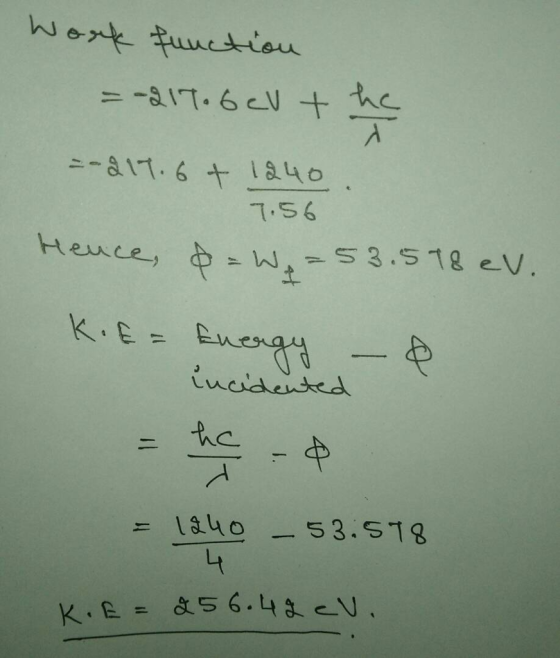 Work function
= -217.6 eV + hc/λ
= -217.6 + 1240/7.56 .
Hence, φ = W₁ = 53.578 eV.
K.E = Energy incidented - φ
= hc/λ - φ
= 1240/4 - 53.578
K.E = 256.42 eV.